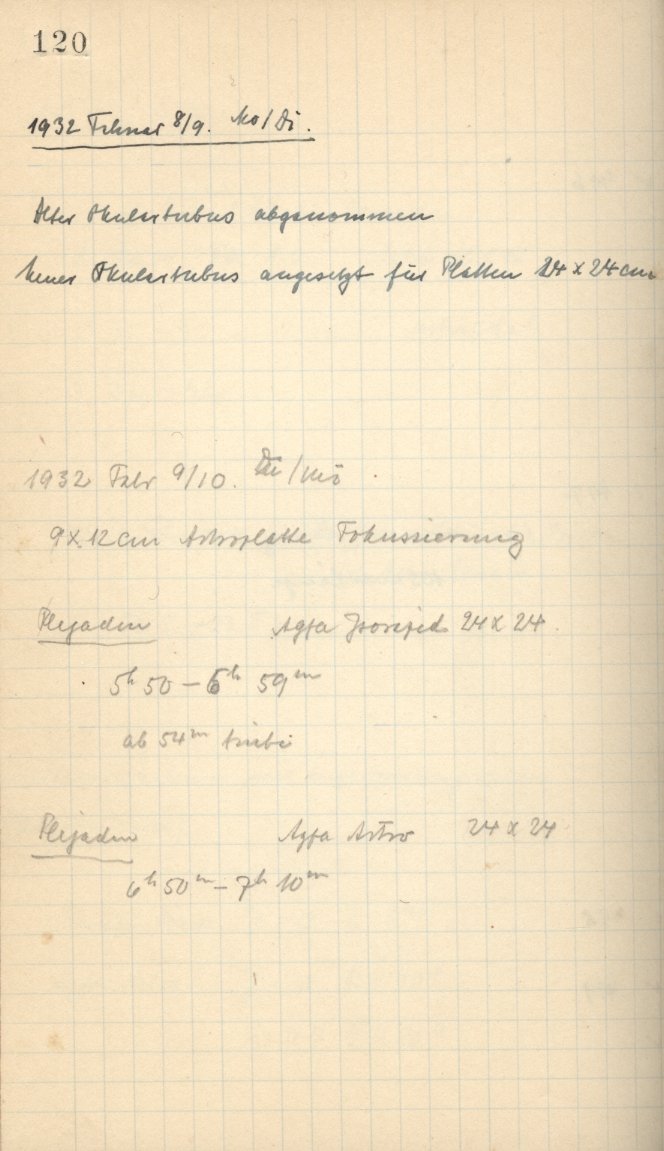 120
1932 Februar 8/9. Mo/Di.
Alter Okulartubus abgenommen
Neuer Okulartubus angesetzt für Platten 24 x 24 cm
1932 Febr 9/10. Di/Mi
9 x 12 cm Astroplatte Fokussierung
Plejaden Agfa Isorapid 24 x 24
5h 50 – 6h 59m
ab 54m trübe
Plejaden Agfa Astro 24 x 24
6h 50m – 7h 10m